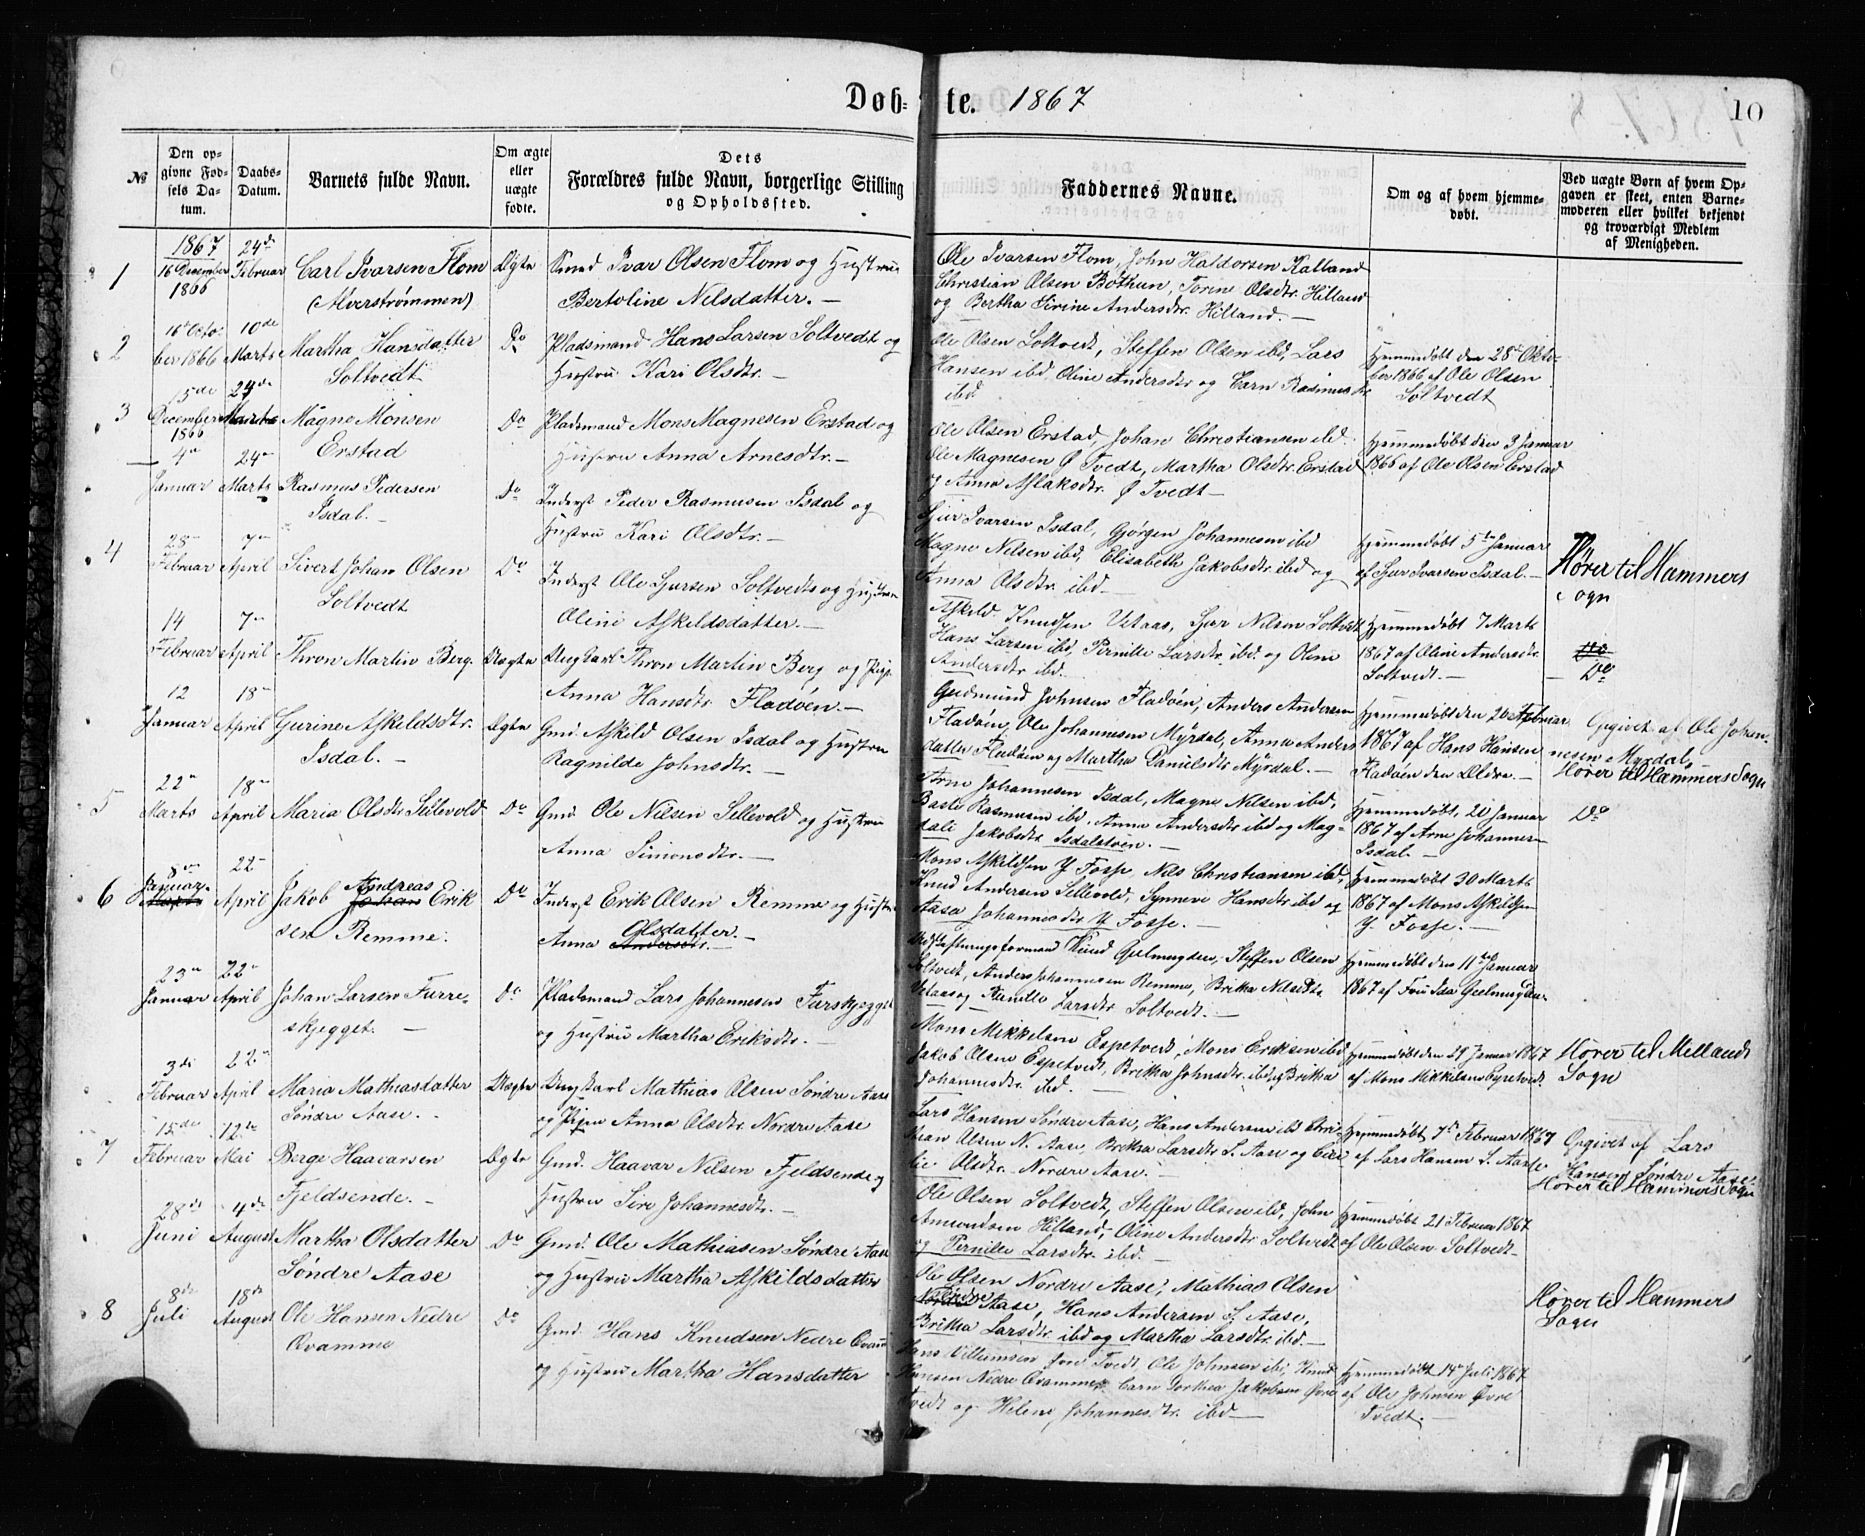 Døb-te. 1867
10
№
Den op-
givne Fød-
sels Da-
tum.
Daabs-
Datum.
Barnets fulde Navn.
Om ægte
eller
uægte
fødte.
Dets
Forældres fulde Navn, borgerlige Stilling
og Opholdssted.
Faddernes Navne.
Om og af hvem hjemme-
døbt.
Ved uægte Børn af hvem Op-
gaven er skeet, enten Barne-
moderen eller hvilket bekjendt
og troværdigt Medlem
af Menigheden.
1867
1
16 December
1866
24de
Februar
Carl Ivarsen Flom
(Alverstrømmen)
Ægte
Smed Ivar Olsen Flom og Hustrue
Bertoline Nilsdatter. —
Ole Ivarsen Flom, John Haldorsen Kalland
Christian Olsen Bothun, Toren Olsdtr. Hilland
og Bertha Sirine Andersdtr. Hilland. —
2
16 Octo-
ber 1866
10de
Marts
Martha Hansdatter
Soltvedt
Do
Pladsmand Hans Larsen Soltvedt og
Hustru Kari Olsdtr. —
Ole Olsen Soltvedt, Steffen Olsen ibd, Lars
Hansen ibd, Oline Andersdtr og Carn Rasmusdtr
ibd.
Hjemmedøbt den 28de Okto-
ber 1866 af Ole Olsen
Soltvedt
3
5de
December
1866
24de
Marts
Magne Monsen
Erstad
Do
Pladsmand Mons Magnesen Erstad og
Hustru Anna Arnesdtr. —
Ole Olsen Erstad, Johan Christiansen ibd.
Ole Magnesen Ø Tvedt, Martha Olsdtr. Erstad
og Anna Aslaksdtr. Ø Tvedt —
Hjemmedøbt den 3 Januar
1866 af Ole Olsen Erstad
4de
Januar
24de
Marts
Rasmus Pedersen
Isdal. —
Do
Inderst Peder Rasmusen Isdal og
Hustru Kari Olsdtr. —
Sjur Ivarsen Isdal, Gjørgen Johannesen ibd
Magne Nilsen ibd, Elisabeth Jakobsdtr. ibd og
Anna Olsdtr. ibd. —
Hjemmedøbt 5te Januar
af Sjur Ivarsen Isdal. —
Hører til Hammers
Sogn
4
28de
Februar
7de
April
Sivert Johan Olsen
Soltvedt
Do
Inderst Ole Sjursen Soltvedt og Hustrue
Oline Askildsdatter. —
Askild Knudsen Vetaas, Sjur Nilsen Soltvedt
Hans Larsen ibd, Pernille Larsdtr. ibd. og Oline
Andersdtr ibd. —
Hjemmedøbt 7 Marts
1867 af Oline Andersdtr.
Soltvedt. —
Do
14
Februar
7de
April
Thron Martin Berg.
Uægte
Ungkarl Thron Martin Berg og Pige
Anna Hansdtr Fladøen. —
Gudmund Johnsen Fladøen, Anders Andersen
Fladøen, Ole Johannesen Myrdal, Anna Anders-
datter Fladøen og Martha Danielsdtr Myrdal. —
Hjemmedøbt den 20 Februar
1867 af Hans Hansen
Fladøen den Ældre. —
Opgivet af Ole Johan-
nesen Myrdal,
Hører til Hammers Sogn
12
Januar
18de
April
Gurine Askildsdtr.
Isdal. —
Ægte
Gmd. Askild Olsen Isdal og Hustrue
Ragnilde Johnsdtr. —
Arne Johannesen Isdal, Magne Nilsen ibd,
Rasmusen ibd, Anna Andersdtr ibd og Mag-
dali Jakobsdtr Isdalstøen. —
Hjemmedøbt, 20 Januar
1867 af Arne Johannesen
Isdal. —
Do
5
22de
Marts
18de
April
Maria Olsdtr Sellevold
Do
Gmd. Ole Nilsen Sellevold og Hustrue
Anna Simonsdtr. —
Mons Askildsen Y Fosse, Nils Christiansen ibd,
Knud Andersen Sellevold, Synneve Hansdtr ibd og
Aasa Johannesdtr Y Fosse. —
Hjemmedøbt 30 Marts
1867 af Mons Askildsen
Y. Fosse. —
6
8de
Januar
22
April
Jakob Andreas Erik-
sen Remme.
Do
Inderst Erik Olsen Remme og Hustrue
Anna Olsdatter. —
Knud Geelmuyden, Steffen Olsen
Soltvedt, Anders Johannesen Remme, Britha Nilsdtr.
Vetaas og Larsdtr Soltvedt. —
Hjemmedøbt den 11te Januar
1867 af Fru Ida Geelmuyden.
23de
Januar
22de
April
Johan Larsen Furre-
skjegget. —
Do
Pladsmand Lars Johannesen Furskjegget
og Hustru Martha Eriksdtr. —
Mons Mikkelsen Espetvedt, Mons Eriksen ibd
Jakob Olsen Espetvedt, Britha Johnsdtr ibd og Britha
Johannesdtr ibd. —
Hjemmedøbt den 29 Januar 1867
af Mons Mikkelsen Espetvedt.
Hører til Mellands
Sogn
3de
Februar
22de
April
Maria Mathiasdatter
Søndre Aase.
Uægte
Ungkarl Mathias Olsen Søndre Aase
og Pigen Anna Olsdtr Nordre Aase
Lars Hansen Søndre Aase, Hans Andersen ibd Chris-
thian Olsen N. Aase, Britha Larsdtr S. Aase og
Olsdtr. Nordre Aase. —
Hjemmedøbt 7de Februar 1867
af Lars Hansen S. Aase
Opgivet af Lars
Hansen Søndre Aase.
Hører til Hammers Sogn
7
15de
Februar
12te
Mai
Berge Haavarsen
Fjeldsende. —
Ægte
Gmd. Haavar Nilsen Fjeldsende og
Hustrue Siri Johannesdtr. —
Ole Olsen Soltvedt, Steffen Olsen ibd, John
Amundsen Hilland, Oline Andersdtr Soltvedt
og Pernille Larsdtr. ibd. —
Hjemmedøbt 21 Februar 1867
af Ole Olsen Soltvedt —
28de
Juni
4de
August
Martha Olsdatter
Søndre Aase
Do
Gmd. Ole Mathiasen Søndre Aase
og Hustrue Martha Askildsdatter
Ole Olsen Nordre Aase, Mathias Olsen
Søndre Aase, Hans Andersen S. Aase,
Britha Larsdtr. ibd og Martha Larsdtr. ibd. —
Hører til Hammers
Sogn
8
8de
Juli
18de
August
Ole Hansen Nedre
Qvamme
Do
Gmd. Hans Knudsen Nedre Qvam
og Hustru Martha Hansdatter
Hans Villumsen Tvedt Ole Johnsen ibd, Knud
Hansen Nedre Qvamme, Carn Dorthea Jakobsen Øvre
Tvedt og Helene Johannesdtr. ibd —
Hjemmedøbt 14de Juli 1867
af Ole Johnsen Øvre
Tvedt. —